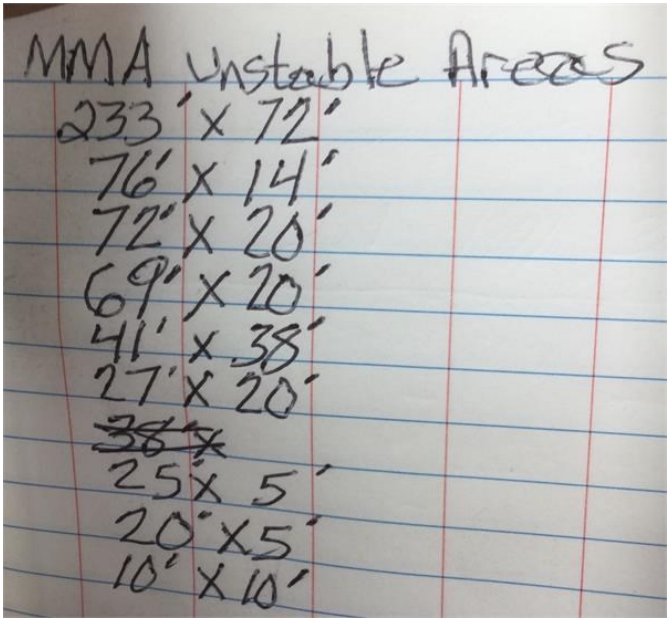 MMA Unstable Areas
233' x 72'
76' x 14'
72' x 20'
69' x 20'
41' x 38'
27' x 20'
38' x
25' x 5'
20' x 5'
10' x 10'